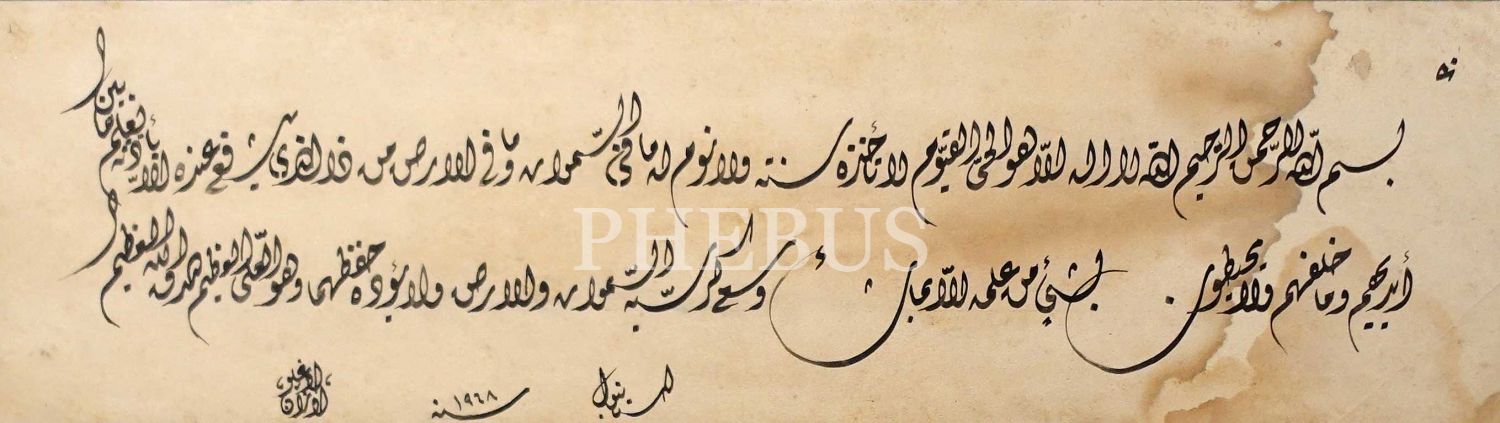 بسم الله الرحمن الرحيم الله لا اله الا هو الحي القيوم لا تأخذه سنة ولا نوم له ما في السموات وما في الارض من ذا الذي يشفع عنده الا بأذنه يعلم ما بين
أيديهم وما خلفهم ولا يحيطون بشيء من علمه الا بما شاء وسع كرسيه السموات والارض ولا يؤده حفظهما وهو العلي العظيم صدق الله العظيم
PHEBUS
استانبول سنة ١٩٦٨